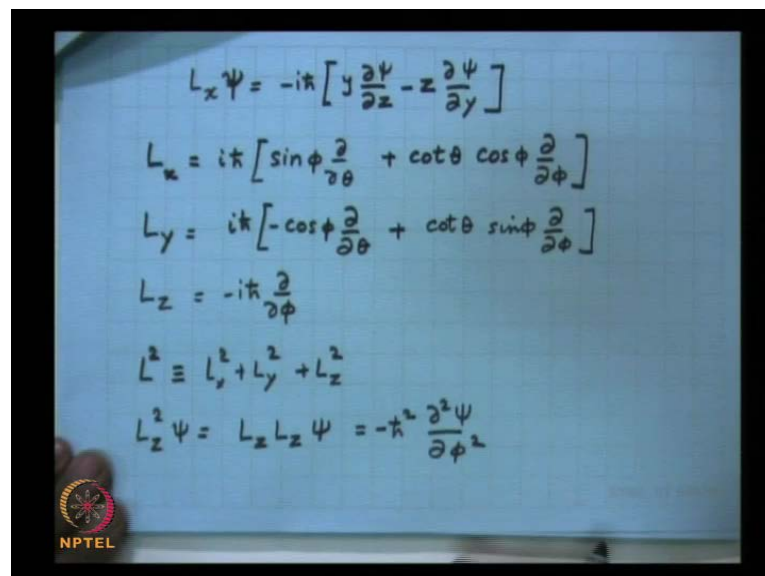 L_x ψ = -iħ [ y ∂ψ/∂z - z ∂ψ/∂y ]
L_x = iħ [ sin φ ∂/∂θ + cot θ cos φ ∂/∂φ ]
L_y = iħ [ -cos φ ∂/∂θ + cot θ sin φ ∂/∂φ ]
L_z = -iħ ∂/∂φ
L² ≡ L_x² + L_y² + L_z²
L_z² ψ = L_z L_z ψ = -ħ² ∂²ψ/∂φ²
NPTEL